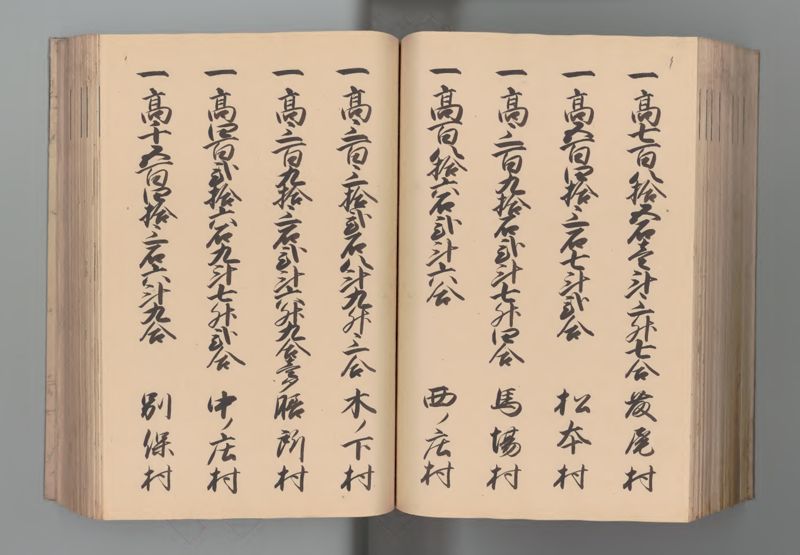 一高七百八拾五石壱斗三升七合 菱尾村
一高五百四拾三石七斗弐合 松本村
一高三百九拾石弐斗七升四合 馬場村
一高百八拾六石弐斗六合 西ノ庄村
一高三百三拾弐石八斗九升三合 木ノ下村
一高三百九拾三石弐斗六升九合 膳所村
一高四百弐拾六石九斗七升弐合 中ノ庄村
一高千五百四拾三石六斗九合 別保村